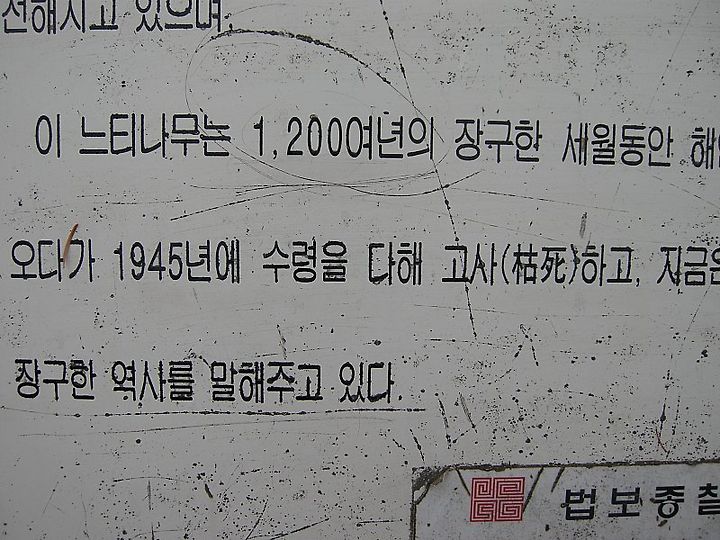 전해지고 있으며,
이 느티나무는 1,200여년의 장구한 세월동안 해
오다가 1945년에 수령을 다해 고사(枯死)하고, 지금은
장구한 역사를 말해주고 있다.
법보종찰